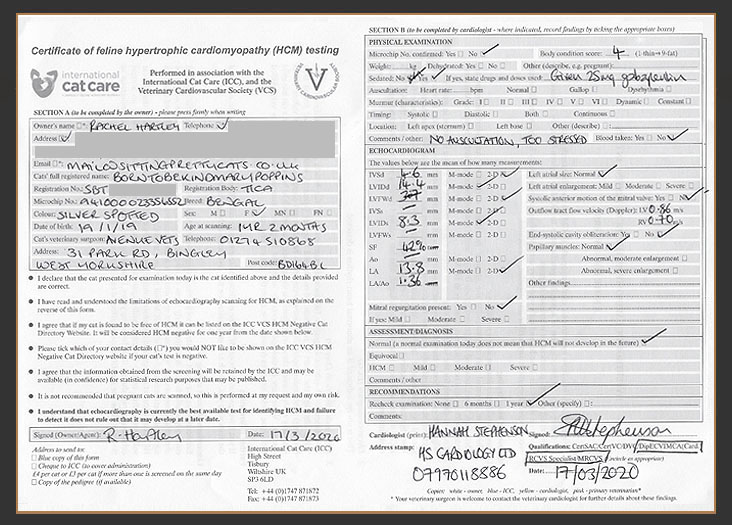 Certificate of feline hypertrophic cardiomyopathy (HCM) testing
international
cat care
Performed in association with the
International Cat Care (ICC), and the
Veterinary Cardiovascular Society (VCS)
VETERINARY CARDIOVASCULAR SOCIETY
SECTION A (to be completed by the owner) - please press firmly when writing
Owner's name □*: RACHEL HARTLEY Telephone ✓
Address ✓
Email □*: MAIL@SITTINGPRETTYCATS.CO.UK
Cats' full registered name: BORNTOBEKINDMARYPOPPINS
Registration No.: SBT Registration Body: TICA
Microchip No.: Breed: BENGAL
Colour: SILVER SPOTTED Sex: M □ F ✓ MN □ FN □
Date of birth: 19/1/19 Age at scanning: 1YR 2 MONTHS
Cat's veterinary surgeon: AVENUE VETS Telephone: 01274 510868
Address: 31 PARK RD, BINGLEY
WEST YORKSHIRE Post code:
● I declare that the cat presented for examination today is the cat identified above and the details provided
are correct.
● I have read and understood the limitations of echocardiography scanning for HCM, as explained on the
reverse of this form.
● I agree that if my cat is found to be free of HCM it can be listed on the ICC VCS HCM Negative Cat
Directory Website. It will be considered HCM negative for one year from the date shown below.
● Please tick which of your contact details (□*) you would NOT like to be shown on the ICC VCS HCM
Negative Cat Directory website if your cat's test is negative.
● I agree that the information obtained from the screening will be retained by the ICC and may be
available (in confidence) for statistical research purposes that may be published.
● It is not recommended that pregnant cats are scanned, so this is performed at my request and my own risk.
● I understand that echocardiography is currently the best available test for identifying HCM and failure
to detect it does not rule out that it may develop at a later date.
Signed (Owner/Agent): R. Hartley Date: 17/3/2020
Address to send to:
□ Blue copy of this form
□ Cheque to ICC (to cover administration)
£4 per cat or £3 per cat if more than one is screened on the same day
□ Copy of the pedigree (if available)
International Cat Care (ICC)
High Street
Tisbury
Wiltshire UK
SP3 6LD
Tel: +44 (0)1747 871872
Fax: +44 (0)1747 871873
SECTION B (to be completed by cardiologist - where indicated, record findings by ticking the appropriate boxes)
PHYSICAL EXAMINATION
Microchip No. confirmed: Yes □ No ✓ Body condition score: 4 (1=thin→9=fat)
Weight: kg Dehydrated: Yes □ No □ Other (describe, e.g. pregnant):
Sedated: No Yes ✓ If yes, state drugs and doses used: Given 25mg gabapentin
Auscultation: Heart rate: bpm Normal □ Gallop □ Dysrhythmia □
Murmur (characteristics): Grade: I □ II □ III □ IV □ V □ VI □ Dynamic □ Constant □
Timing: Systolic □ Diastolic □ Both □ Continuous □
Location: Left apex (sternum) □ Left base □ Other (describe) □
Comments / other: NO AUSCULTATION, TOO STRESSED Blood taken: Yes □ No ✓
ECHOCARDIOGRAM
The values below are the mean of how many measurements:
IVSd 4.6 mm M-mode □ 2-D ✓ Left atrial size: Normal ✓
LVIDd 14.4 mm M-mode □ 2-D ✓ Left atrial enlargement: Mild □ Moderate □ Severe □
LVFWd mm M-mode □ 2-D ✓ Systolic anterior motion of the mitral valve: Yes □ No ✓
IVSs mm M-mode □ 2-D □ Outflow tract flow velocity (Doppler): LV 0.86 m/s
LVIDs 8.3 mm M-mode □ 2-D ✓ RV 0.70 m/s
LVFWs mm M-mode □ 2-D □ End-systolic cavity obliteration: Yes □ No ✓
SF 42% Papillary muscles: Normal ✓
Ao mm M-mode □ 2-D □ Abnormal, moderate enlargement □
LA 13.8 mm M-mode □ 2-D ✓ Abnormal, severe enlargement □
LA/Ao 1.36 Other findings
Mitral regurgitation present: Yes □ No ✓
If yes: Mild □ Moderate □ Severe □
ASSESSMENT/DIAGNOSIS
Normal (a normal examination today does not mean that HCM will not develop in the future) ✓
Equivocal □
HCM □ Mild □ Moderate □ Severe □
Comments/other
RECOMMENDATIONS
Recheck examination: None □ 6 months □ 1 year ✓ Other (specify) □:
Comments:
Cardiologist (print): HANNAH STEPHENSON Signed: HStephenson
Address stamp: HS CARDIOLOGY LTD
07970118886
Qualifications: CertSAC/CertVC/DVC/DipECVIMCA(Card)
RCVS Specialist/MRCVS (circle as appropriate)
Date: 17/03/2020
Copies: white - owner, blue - ICC, yellow - cardiologist, pink - primary veterinarian*
*Your veterinary surgeon is welcome to contact the veterinary cardiologist for further details about these findings.